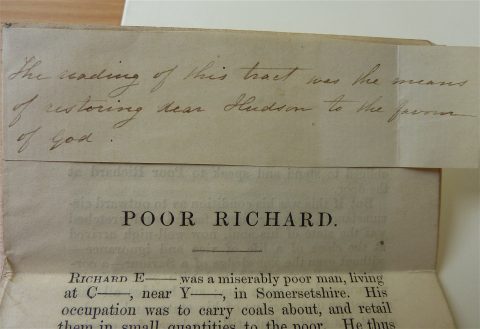 The reading of this tract was the means
of restoring dear Hudson to the favour
of God.
POOR RICHARD.
RICHARD E—— was a miserably poor man, living
at C——, near Y——, in Somersetshire. His
occupation was to carry coals about, and retail
them in small quantities to the poor. He thus